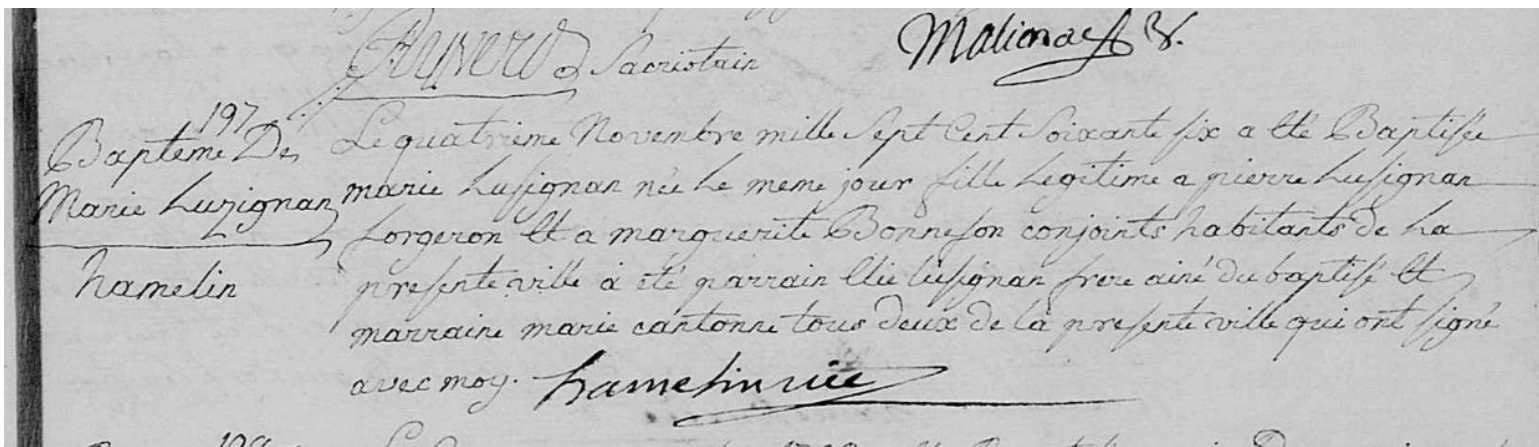 Sacristain
197
Bapteme De
Marie Luzignan
hamelin
Le quatrieme Novembre mille Sept Cent Soixante six a été Baptisée
marie Lusignan née Le meme jour fille Legitime a pierre Lusignan
forgeron Et a marguerite Bonneson conjoints habitants de La
presente ville à été parrain Elie lusignan frere ainé du baptisé Et
marraine marie cantonne tous deux de la presente ville qui ont signé
avec moy. hamelin vic